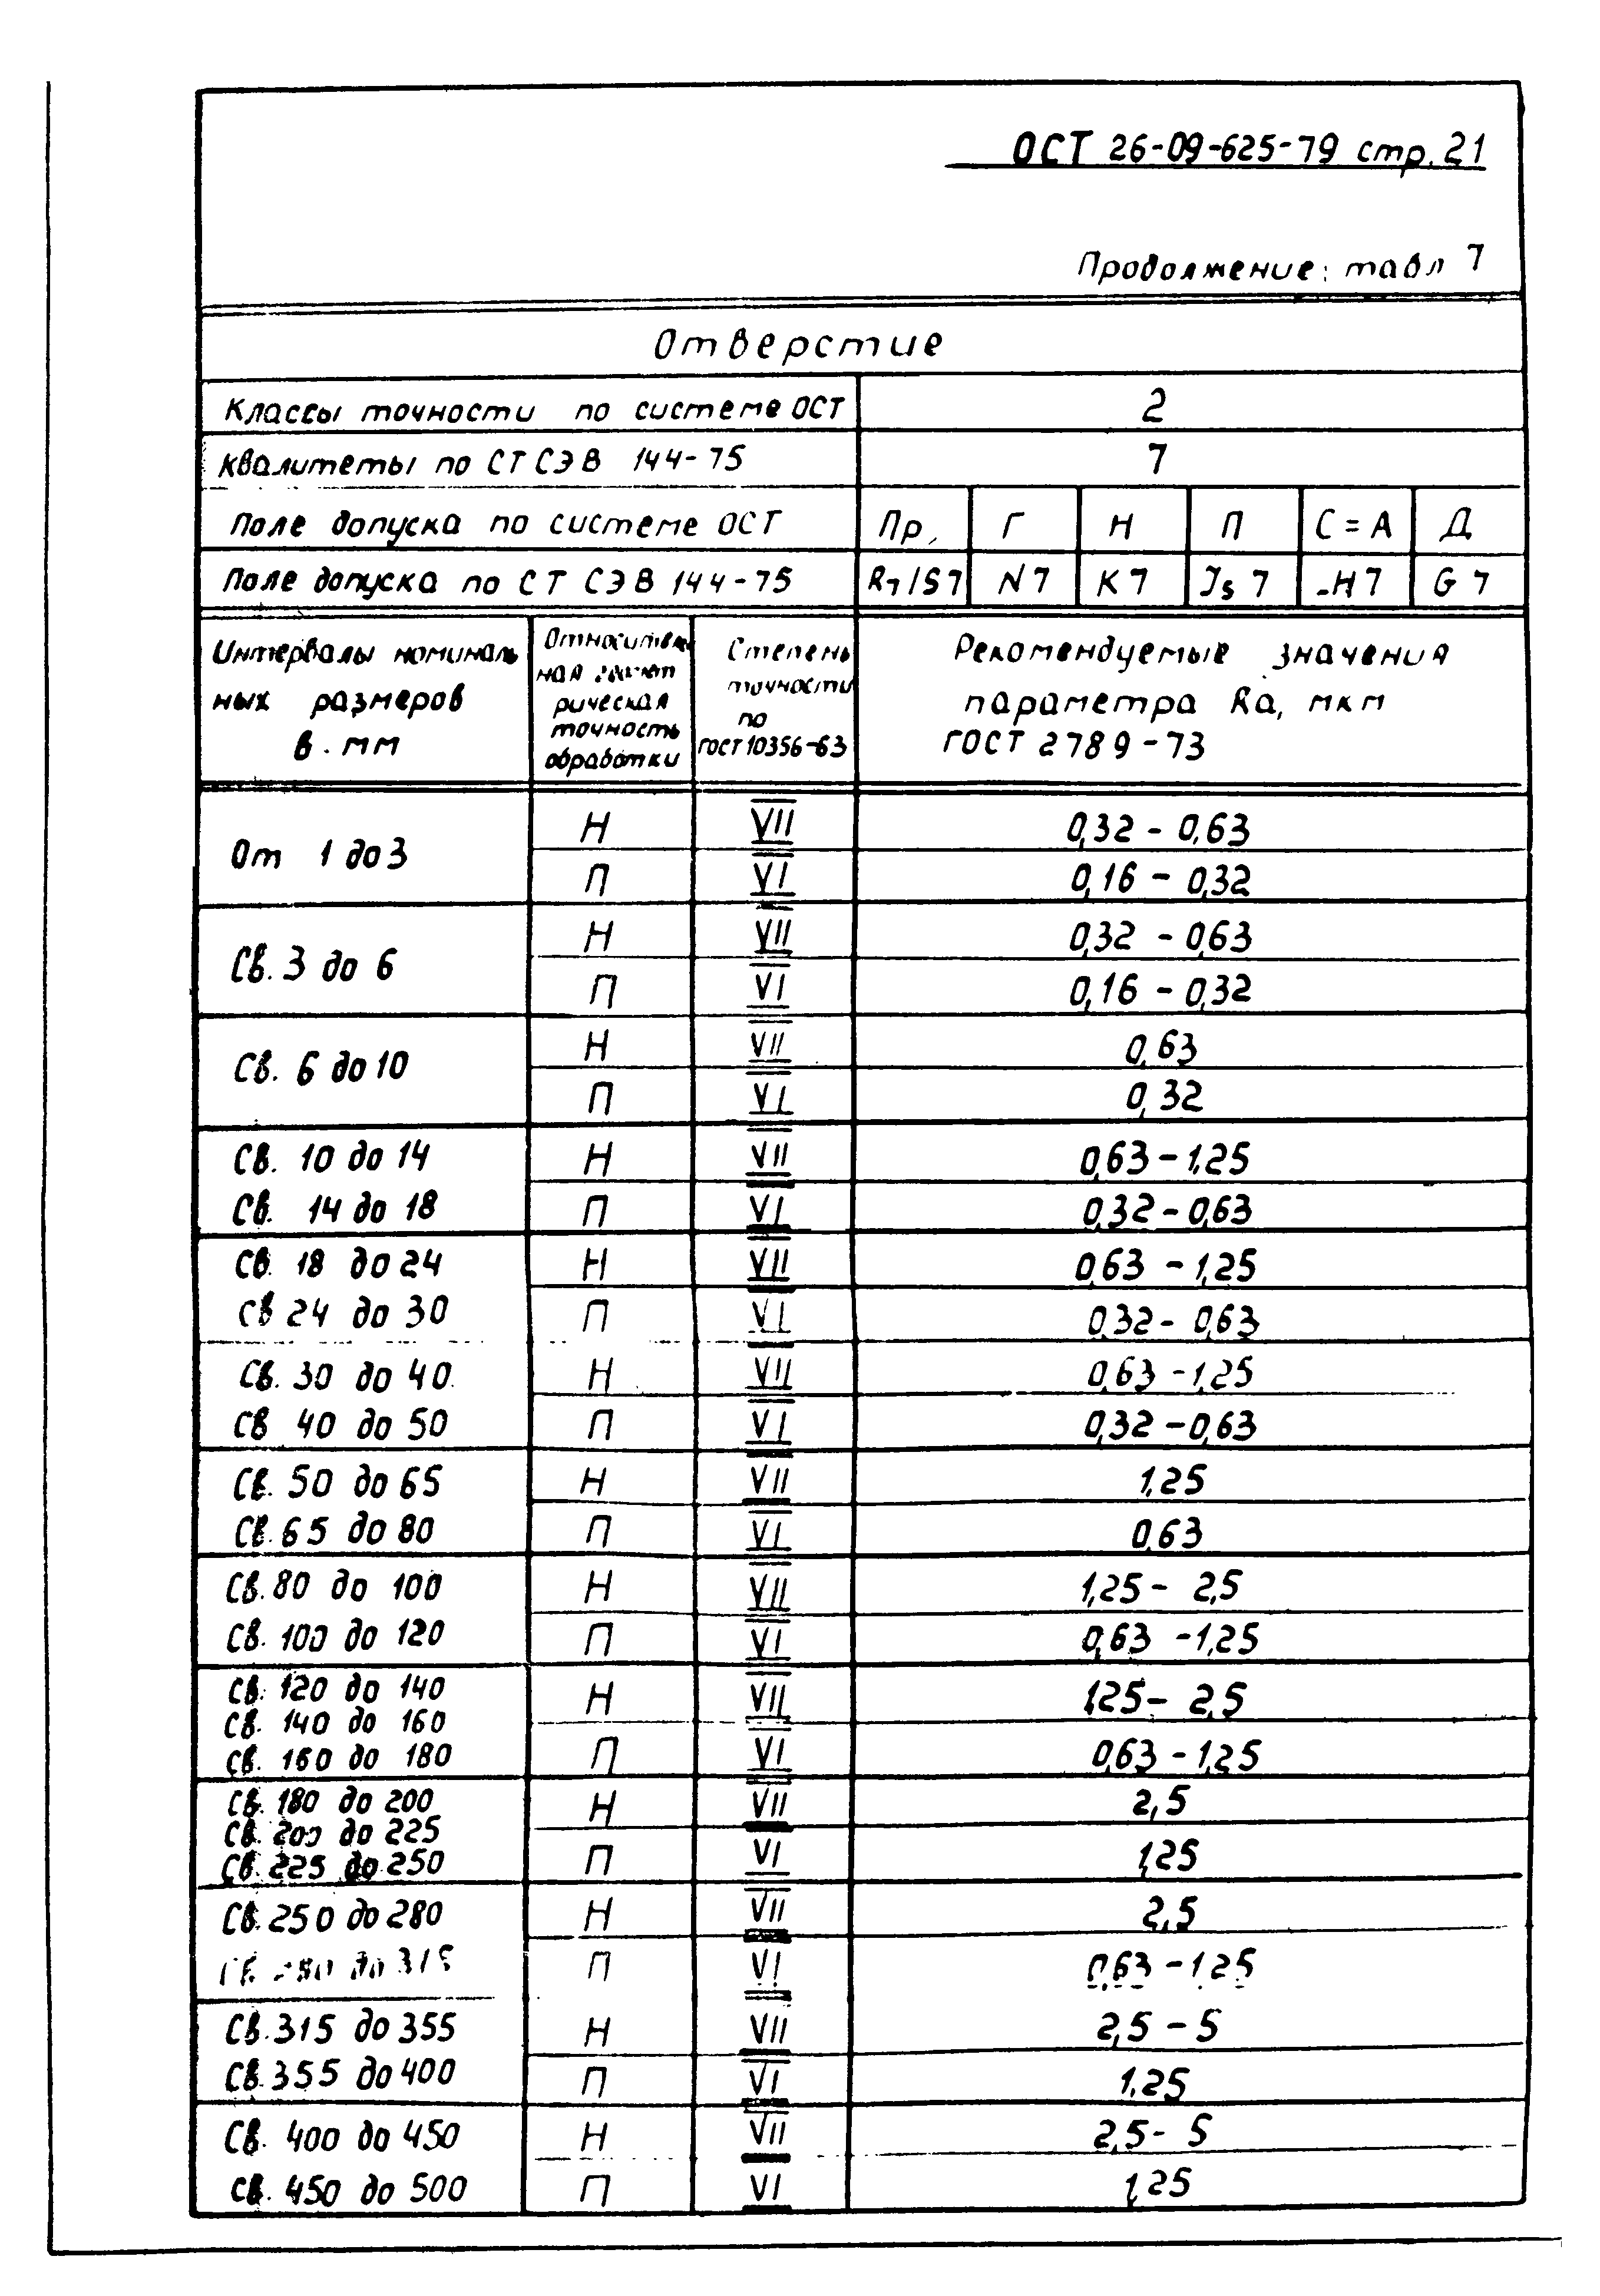 ОСТ 26-09-625-79 стр. 21
Продолжение: табл 7
Отверстие
Классы точности по системе ОСТ 2
Квалитеты по СТ СЭВ 144-75 7
Поле допуска по системе ОСТ Пр. Г Н П С=А Д
Поле допуска по СТ СЭВ 144-75 R7/S7 N7 K7 Js 7 H7 G7
Интервалы номиналь
ных размеров
в мм
Относитель
ная
рическая
точность
обработки
Степень
точности
по
ГОСТ 10356-63
Рекомендуемые значения
параметра Ra, мкм
ГОСТ 2789-73
От 1 до 3
Н VII 0,32 - 0,63
П VI 0,16 - 0,32
Св. 3 до 6
Н VII 0,32 - 0,63
П VI 0,16 - 0,32
Св. 6 до 10
Н VII 0,63
П VI 0,32
Св. 10 до 14 Н VII 0,63 - 1,25
Св. 14 до 18 П VI 0,32 - 0,63
Св. 18 до 24 Н VII 0,63 - 1,25
Св 24 до 30 П VI 0,32 - 0,63
Св. 30 до 40 Н VII 0,63 - 1,25
Св 40 до 50 П VI 0,32 - 0,63
Св. 50 до 65 Н VII 1,25
Св. 65 до 80 П VI 0,63
Св. 80 до 100 Н VII 1,25 - 2,5
Св. 100 до 120 П VI 0,63 - 1,25
Св. 120 до 140
Св. 140 до 160
Св. 160 до 180
Н VII 1,25 - 2,5
П VI 0,63 - 1,25
Св. 180 до 200
Св. 200 до 225
Св. 225 до 250
Н VII 2,5
П VI 1,25
Св. 250 до 280 Н VII 2,5
Св 280 до 315 П VI 0,63 - 1,25
Св. 315 до 355 Н VII 2,5 - 5
Св. 355 до 400 П VI 1,25
Св. 400 до 450 Н VII 2,5 - 5
Св. 450 до 500 П VI 1,25